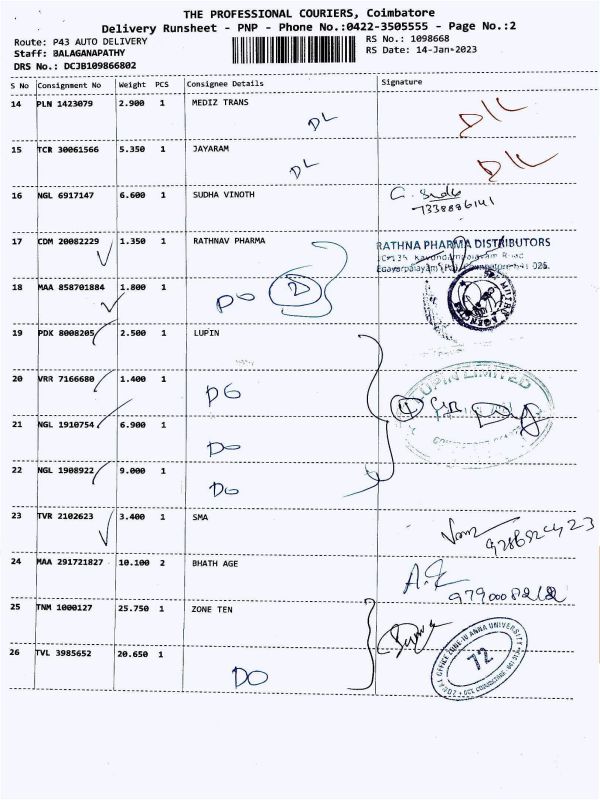 THE PROFESSIONAL COURIERS, Coimbatore
Delivery Runsheet - PNP - Phone No.:0422-3505555 - Page No.:2
Route: P43 AUTO DELIVERY
RS No.: 1098668
Staff: BALAGANAPATHY
RS Date: 14-Jan-2023
DRS No.: DCJB109866802
S No Consignment No Weight PCS Consignee Details Signature
14 PLN 1423079 2.900 1 MEDIZ TRANS
DL
15 TCR 30061566 5.350 1 JAYARAM
DL
16 NGL 6917147 6.600 1 SUDHA VINOTH
7338886141
17 CDM 20082229 1.350 1 RATHNAV PHARMA
RATHNA PHARMA DISTRIBUTORS
18 MAA 858701884 1.800 1
DO 2
19 PDK 8008205 2.500 1 LUPIN
20 VRR 7166680 1.400 1
DO
LUPIN LIMITED
4
21 NGL 1910754 6.900 1
DO
22 NGL 1908922 9.000 1
DO
23 TVR 2102623 3.400 1 SMA
24 MAA 291721827 10.100 2 BHATH AGE
25 TNM 1000127 25.750 1 ZONE TEN
26 TVL 3985652 20.650 1
DO
ANNA UNIVERSITY
72